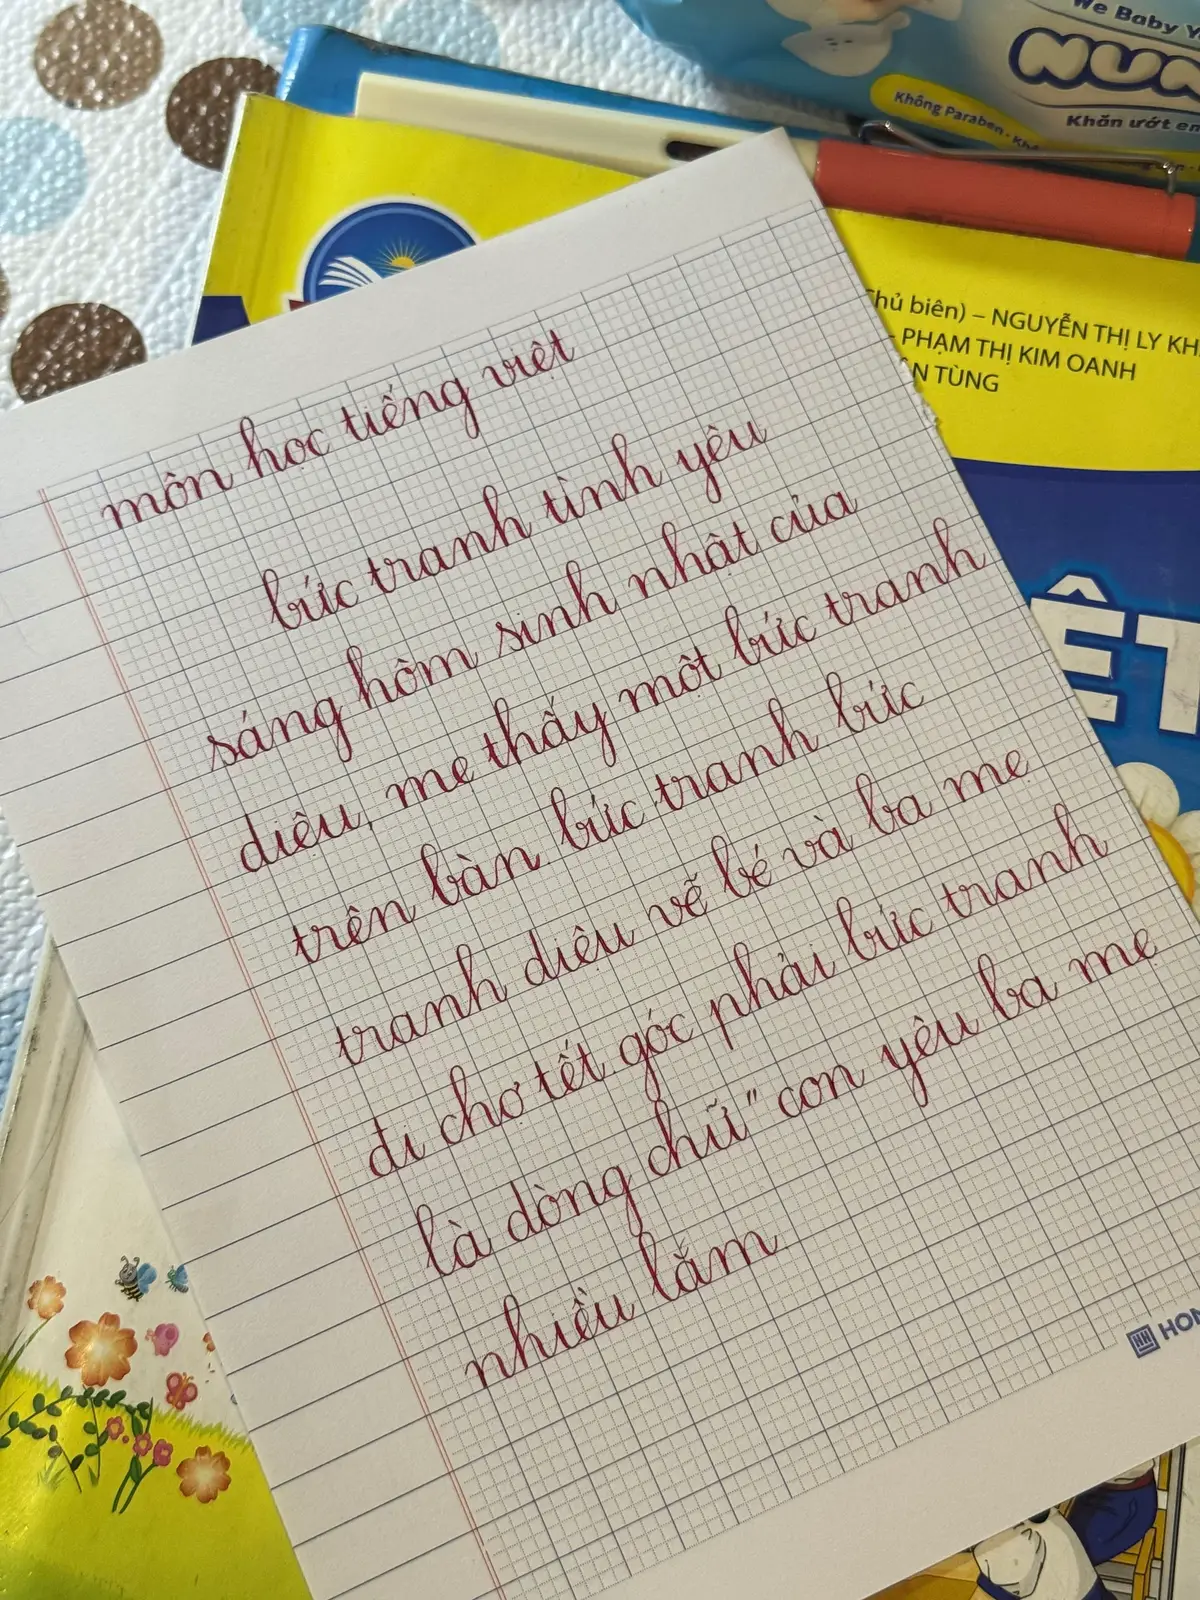 We Baby Yo
NUN
Không Paraben · Khô
Khăn ướt em
Chủ biên) – NGUYỄN THỊ LY KH
PHẠM THỊ KIM OANH
ÂN TÙNG
ÊT
môn học tiếng việt
bức tranh tình yêu
sáng hôm sinh nhật của
diệu, mẹ thấy một bức tranh
trên bàn. bức tranh bức
tranh diệu vẽ bé và ba mẹ
đi chợ tết góc phải bức tranh
là dòng chữ " con yêu ba mẹ
nhiều lắm
HON